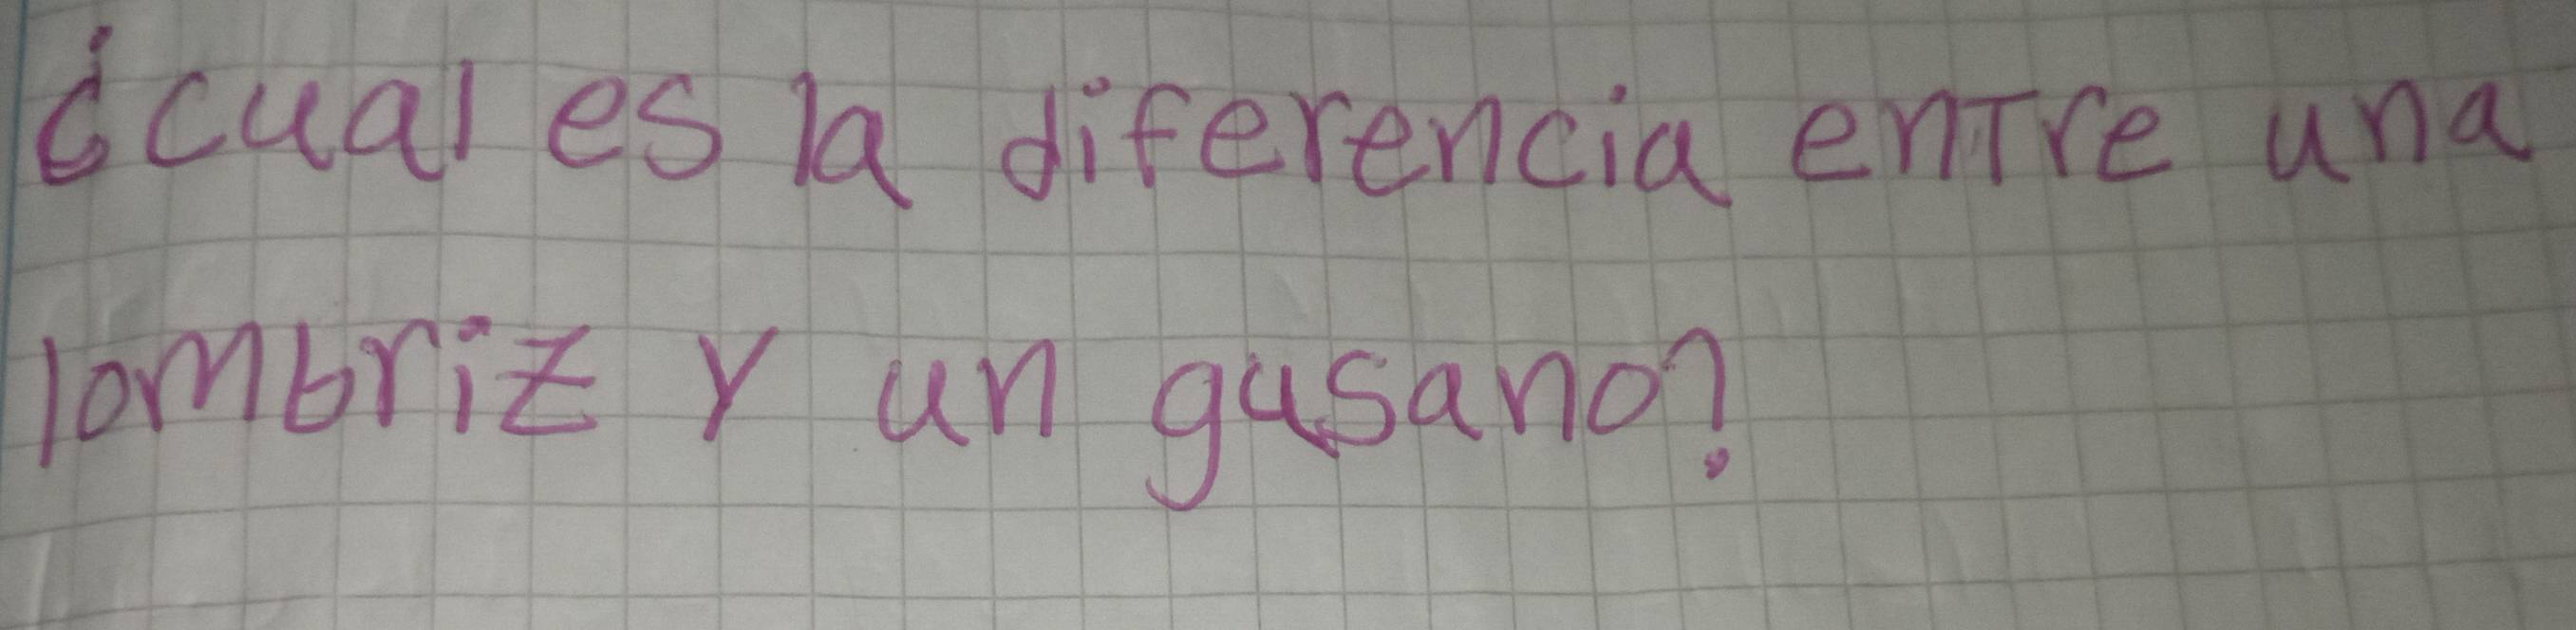 ¿cual es la diferencia entre una
lombriz y un gusano?